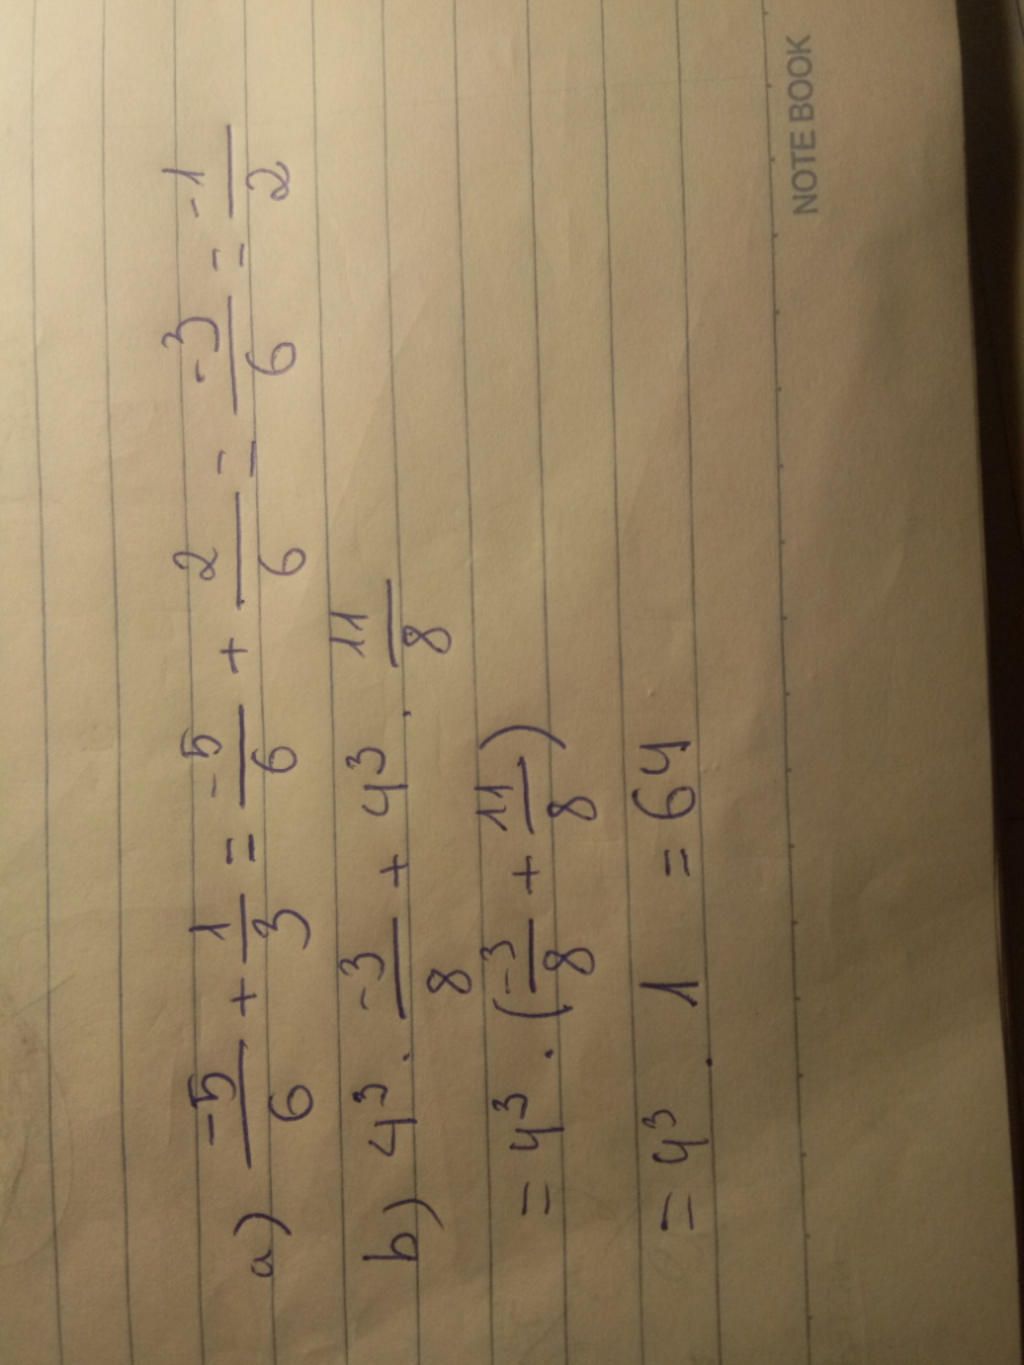 a) -5/6 + 1/3 = -5/6 + 2/6 = -3/6 = -1/2
b) 4³ . -3/8 + 4³ . 11/8
= 4³ . (-3/8 + 11/8)
= 4³ . 1 = 64
NOTE BOOK